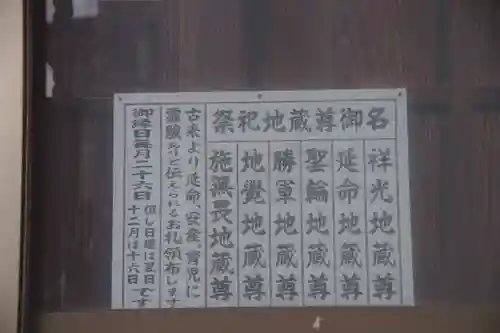 祭祀地蔵尊御名
祥光地蔵尊
延命地蔵尊
聖輪地蔵尊
勝軍地蔵尊
地覺地蔵尊
施無畏地蔵尊
古来より延命、安産、育児に
霊験ありと伝えられるお札頒布します
御縁日毎月二十六日
但し日曜は翌日
十二月は十六日です